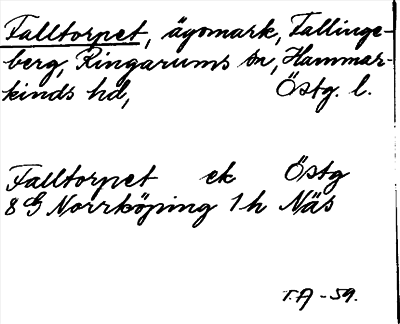 Falltorpet, ägomark, Fallinge-
berg, Ringarums sn, Hammar-
kinds hd, Östg. l.
Falltorpet ek Östg
8G Norrköping 1h Näs
T.A -59.